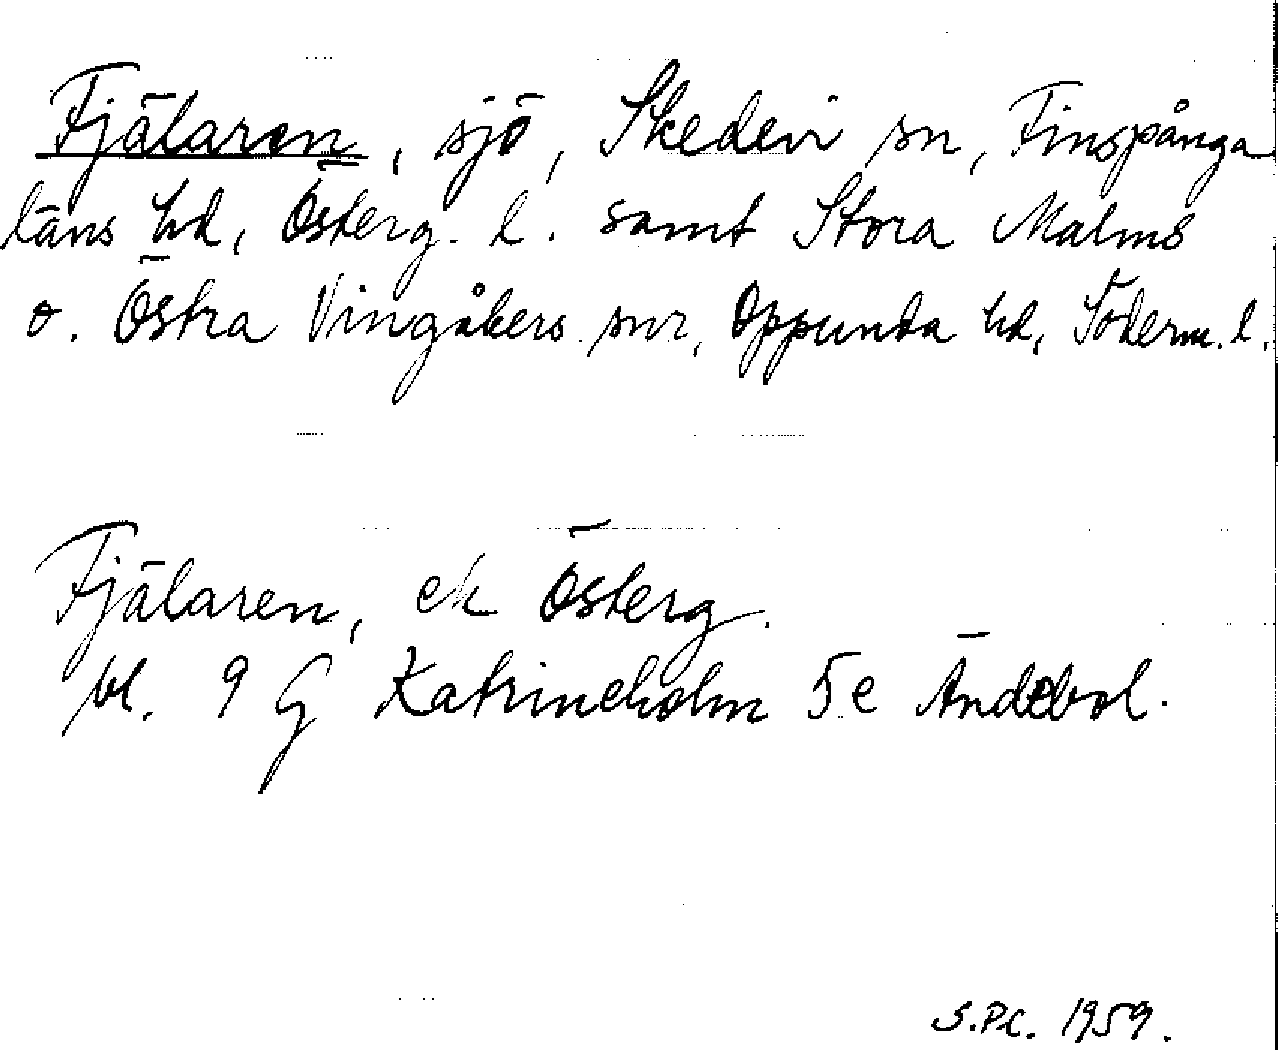 Fjälaren, sjö, Skedevi sn, Finspånga
läns hd, Österg. l. samt Stora Malms
o. Östra Vingåkers snr, Oppunda hd, Söderm. l.
Fjälaren, ek Österg.
bl. 9 G Katrineholm 5e Ändebol.
S.P.C. 1959.